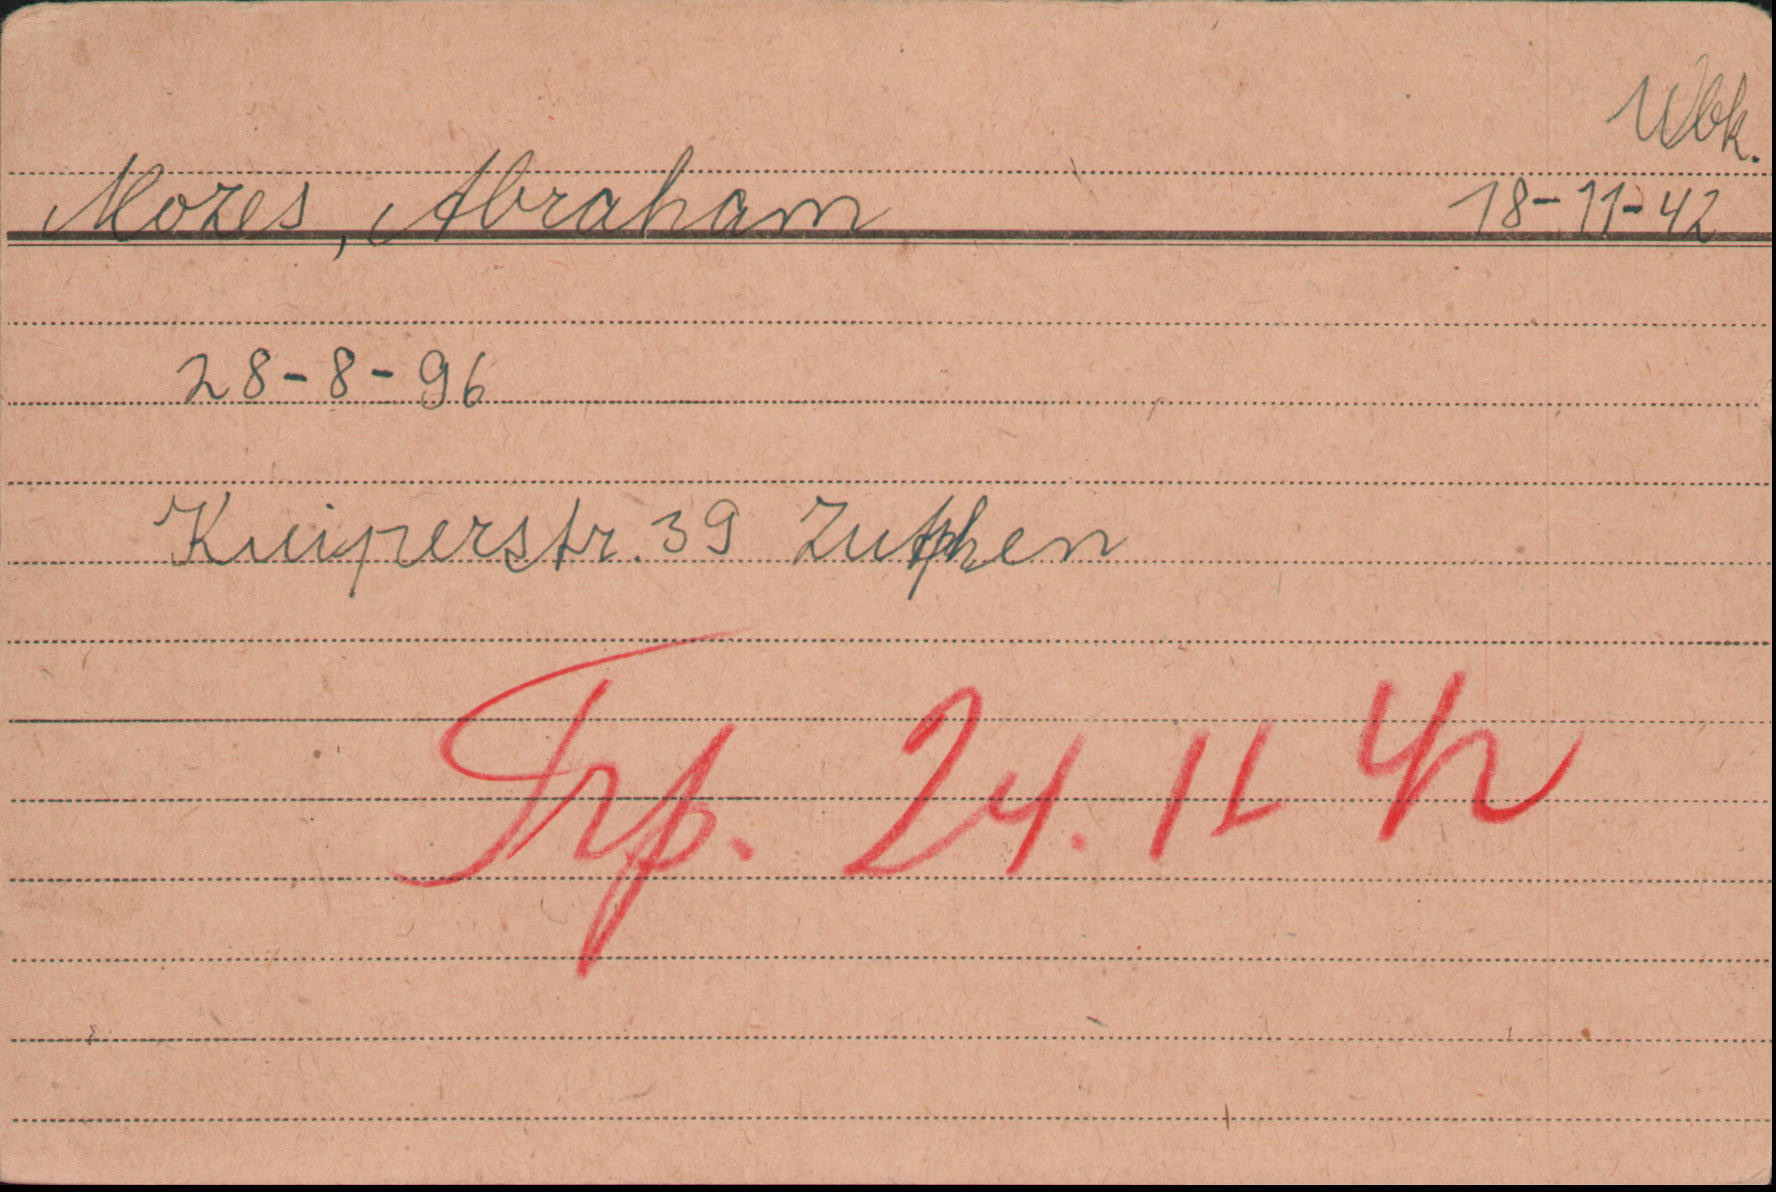 Wbk.
Mozes, Abraham 18-11-42
28-8-96
Kuiperstr. 39 Zutphen
Trp. 24.11 42